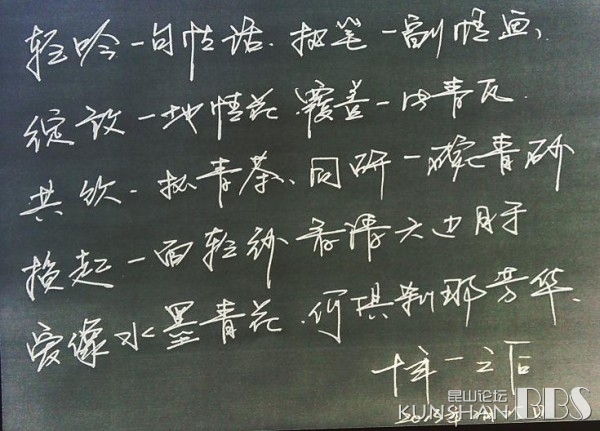 轻吟一句情话、执笔一副情画、
绽放一地情花、覆盖一片青瓦
共饮一杯青茶、同研一碗青砂
掀起一面轻纱 看清天边月牙
爱像水墨青花、何惧刹那芳华、
十年一之后
2013年
昆山论坛
KUNSHAN BBS